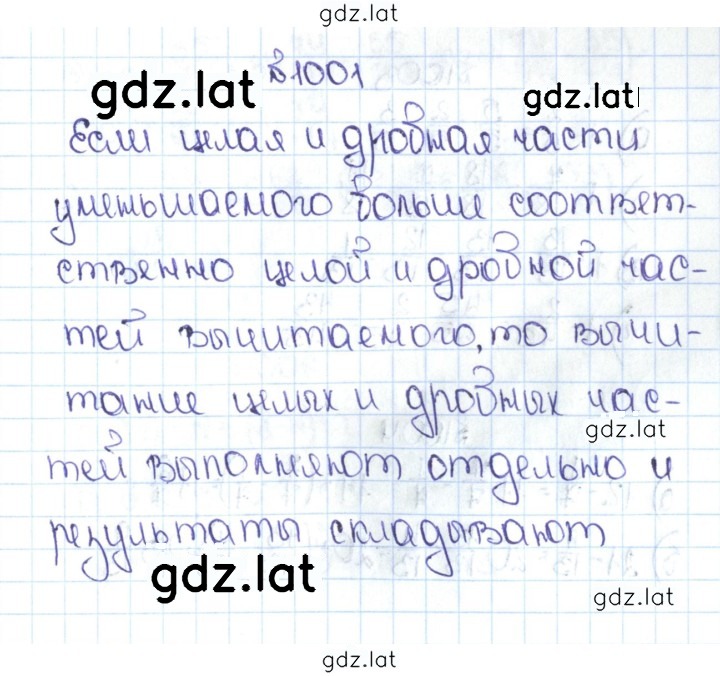 gdz.lat
№1001
gdz.lat gdz.lat
Если целая и дробная части
уменьшаемого больше соответ-
ственно целой и дробной час-
тей вычитаемого, то вычи-
тание целых и дробных час-
gdz.lat
тей выполняют отдельно и
результаты складывают
gdz.lat
gdz.lat
gdz.lat